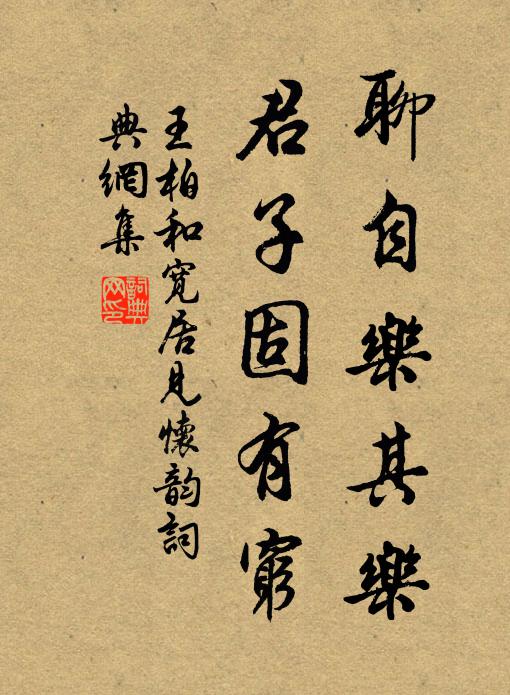 聊自樂其樂
君子固有窮
王柏和寬居見懷韵詞
典網集
詞典網印